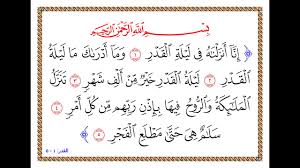 بِسْمِ اللَّهِ الرَّحْمَٰنِ الرَّحِيمِ
﴿ إِنَّا أَنزَلْنَاهُ فِي لَيْلَةِ الْقَدْرِ ۝١ وَمَا أَدْرَاكَ مَا لَيْلَةُ
الْقَدْرِ ۝٢ لَيْلَةُ الْقَدْرِ خَيْرٌ مِّنْ أَلْفِ شَهْرٍ ۝٣ تَنَزَّلُ
الْمَلَائِكَةُ وَالرُّوحُ فِيهَا بِإِذْنِ رَبِّهِم مِّن كُلِّ أَمْرٍ ۝٤
سَلَامٌ هِيَ حَتَّىٰ مَطْلَعِ الْفَجْرِ ۝٥ ﴾
القدر: ١-٥